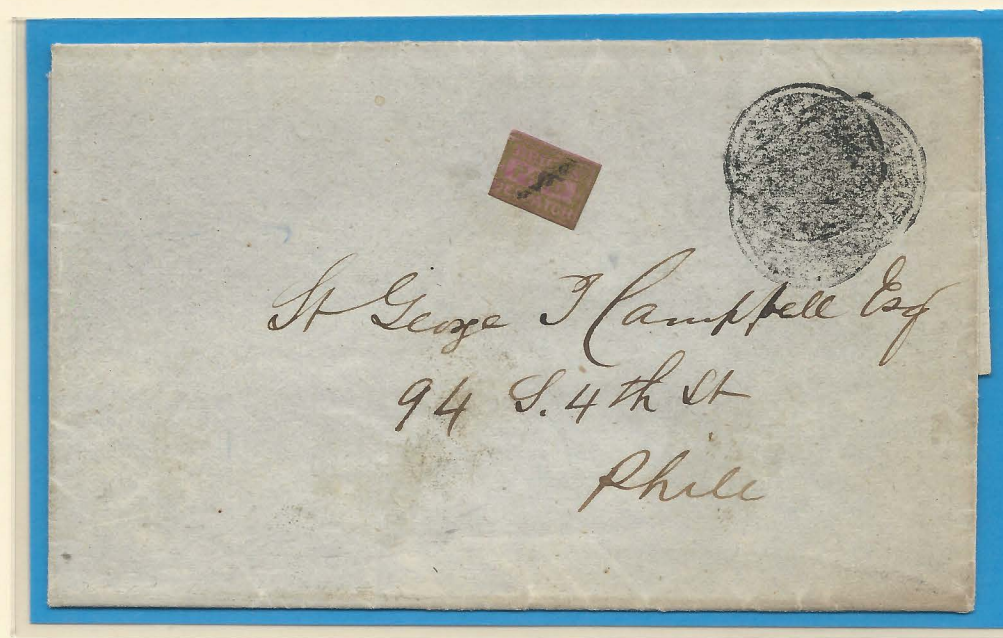 DESPATCH
St George T Campbell Esq
94 S. 4th St
Phila